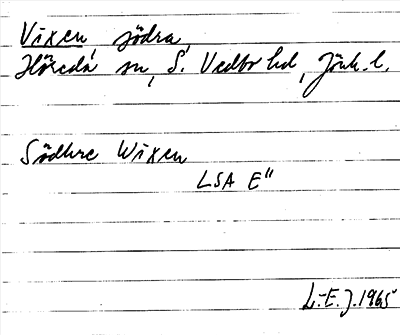 Vixen, södra,
Höreda sn, S. Vedbo hd, Jönk. l.
Södhre Wixen
LSA E"
L-E. J. 1965